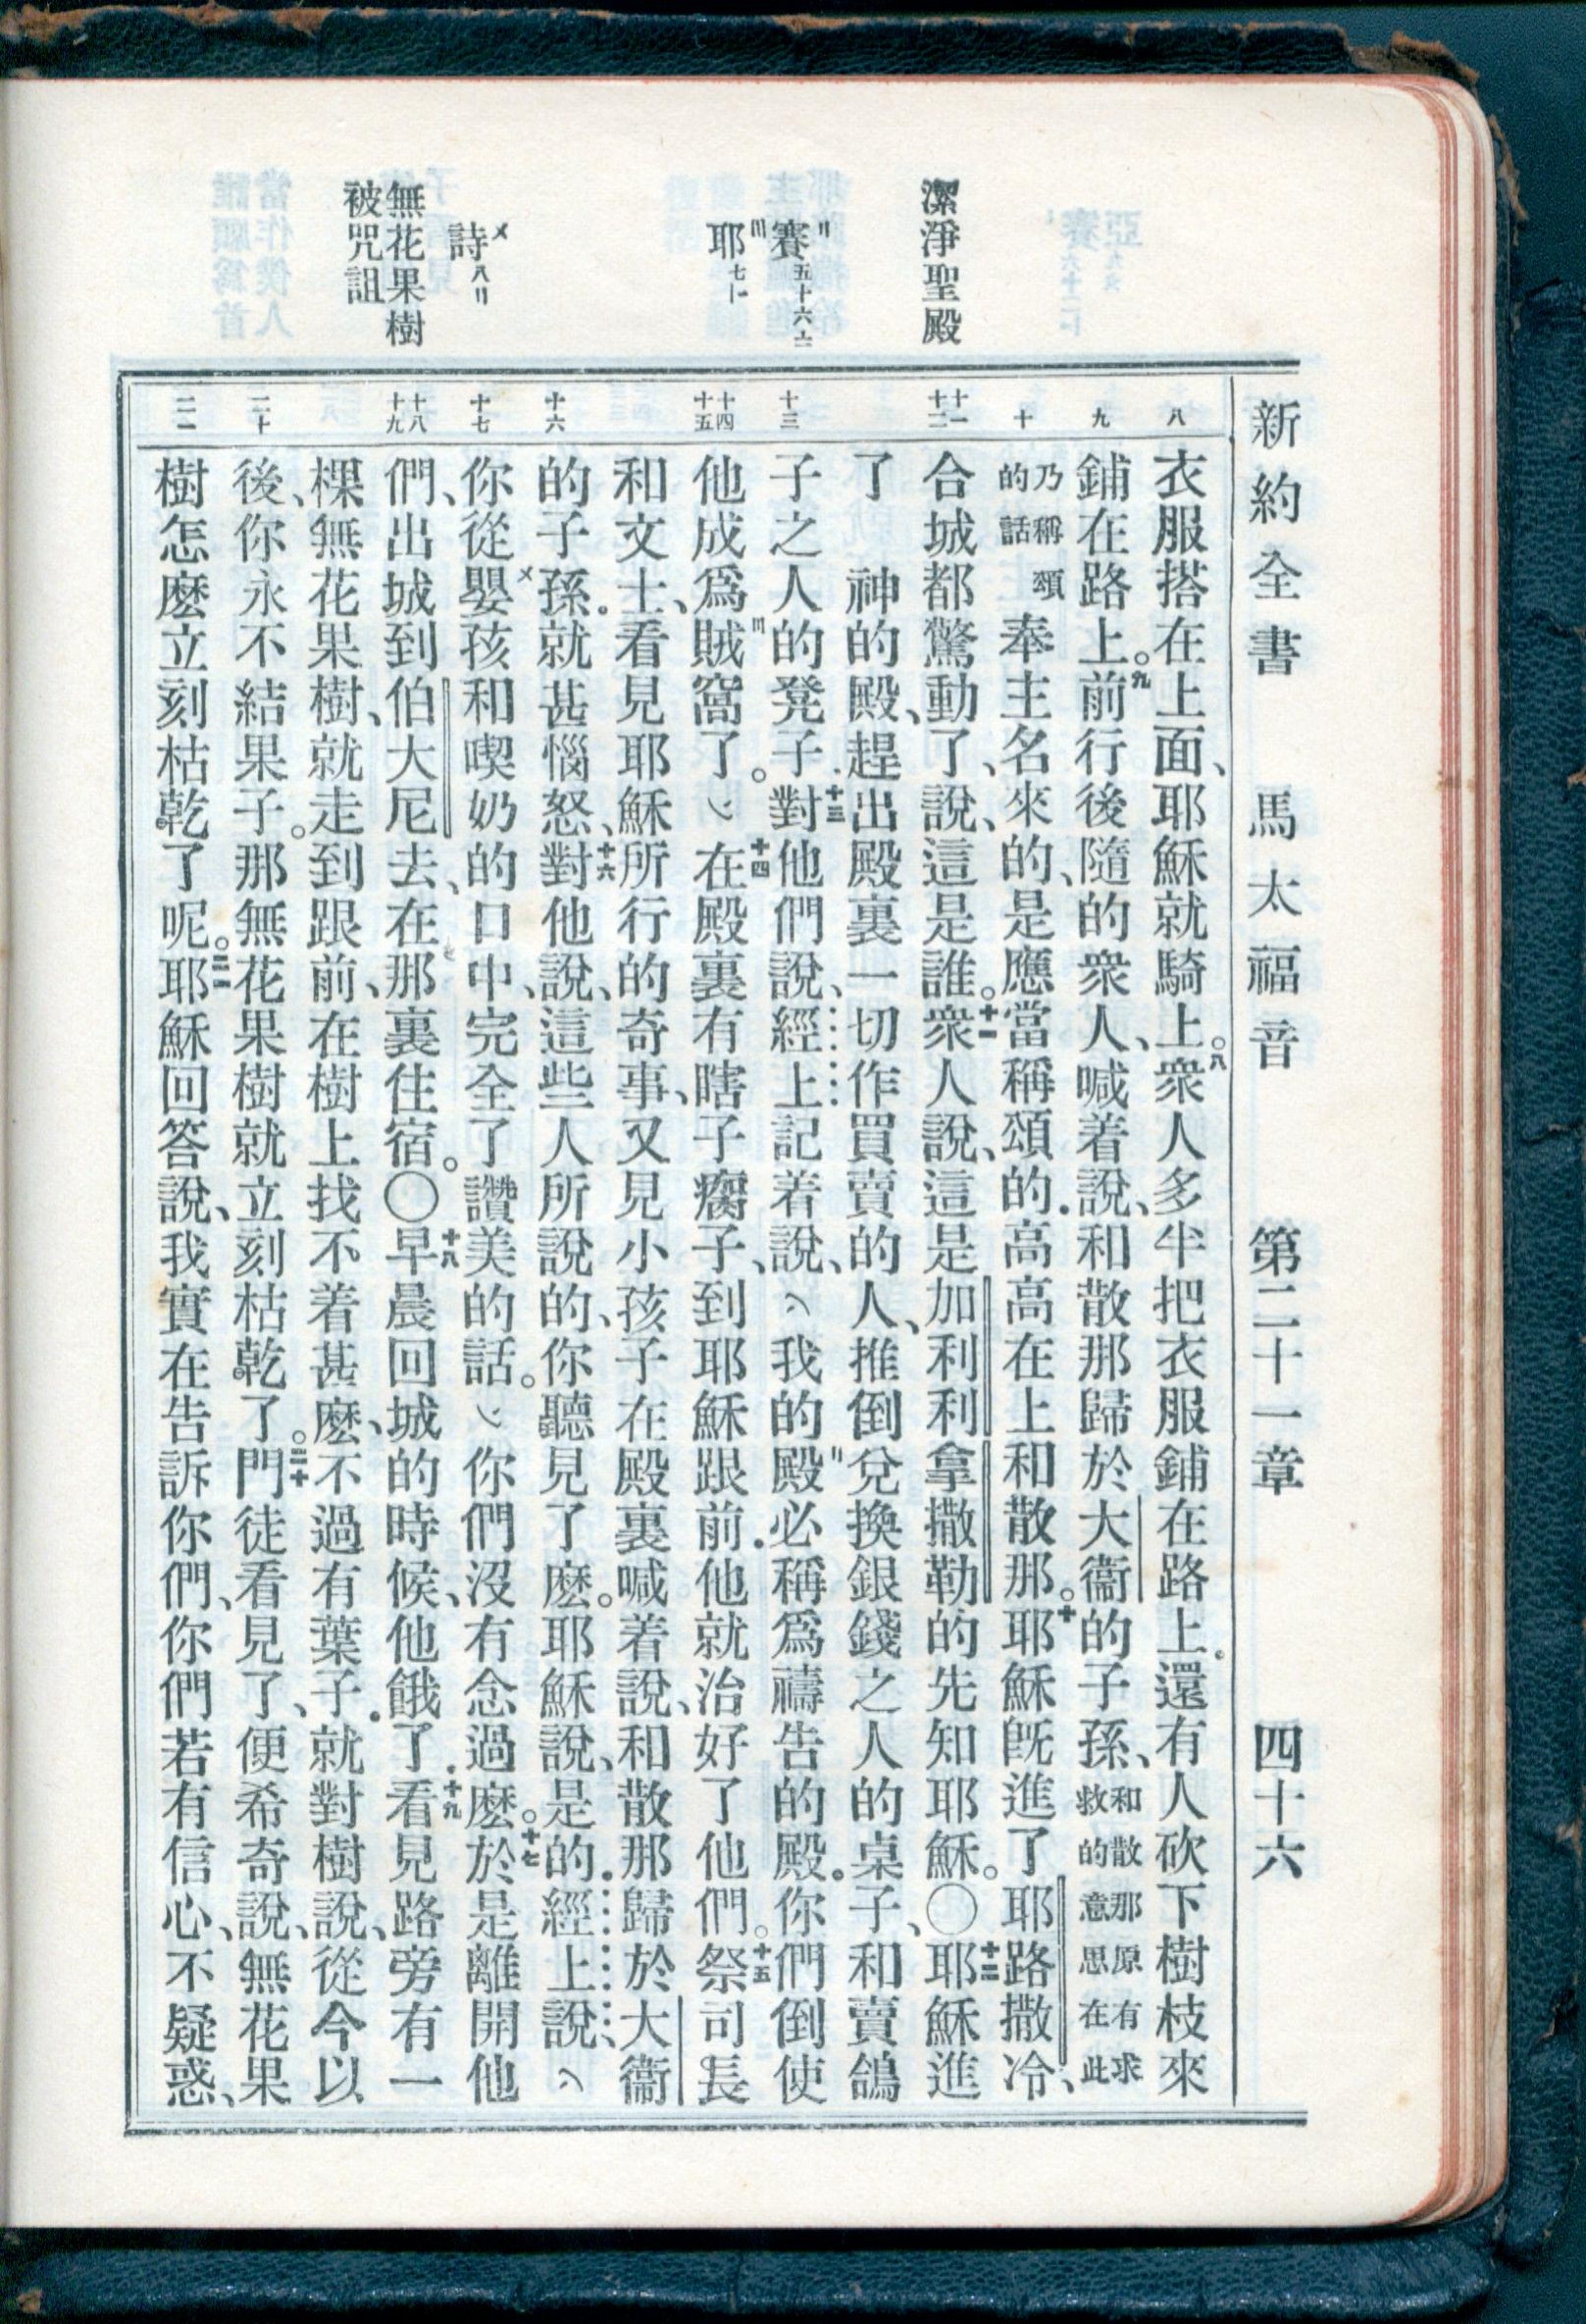 新約全書 馬太福音 第二十一章 四十六
潔淨聖殿
〢賽五十六〧
〣耶七〡〡
〤詩八〢
無花果樹
被咒詛
八
九
十
十一
十二
十三
十四
十五
十六
十七
十八
十九
二十
二一
衣服搭在上面、耶穌就騎上。八衆人多半把衣服鋪在路上．還有人砍下樹枝來
鋪在路上。九前行後隨的衆人、喊着說、和散那歸於大衞的子孫、和散那原有求救的意思在此
乃稱頌的話 奉主名來的、是應當稱頌的．高高在上和散那。十耶穌旣進了耶路撒冷、
合城都驚動了、說、這是誰。十一衆人說、這是加利利拿撒勒的先知耶穌。〇十二耶穌進
了 神的殿、趕出殿裏一切作買賣的人、推倒兌換銀錢之人的桌子、和賣鴿
子之人的凳子．十三對他們說、經上記着說、我的殿〢必稱爲禱告的殿．你們倒使
他成爲賊〣窩了。十四在殿裏有瞎子瘸子、到耶穌跟前．他就治好了他們。十五祭司長
和文士、看見耶穌所行的奇事、又見小孩子在殿裏喊着說、和散那歸於大衞
的子孫．就甚惱怒、十六對他說、這些人所說的、你聽見了麽。耶穌說、是的．經上說、
你從嬰〤孩和喫奶的口中、完全了讚美的話。你們沒有念過麽。十七於是離開他
們、出城到伯大尼去、在那裏住宿。〇十八早晨回城的時候、他餓了．十九看見路旁有一
棵無花果樹、就走到跟前、在樹上找不着甚麽、不過有葉子．就對樹說、從今以
後、你永不結果子。那無花果樹就立刻枯乾了。二十門徒看見了、便希奇說、無花果
樹怎麽立刻枯乾了呢。二一耶穌回答說、我實在告訴你們、你們若有信心、不疑惑、